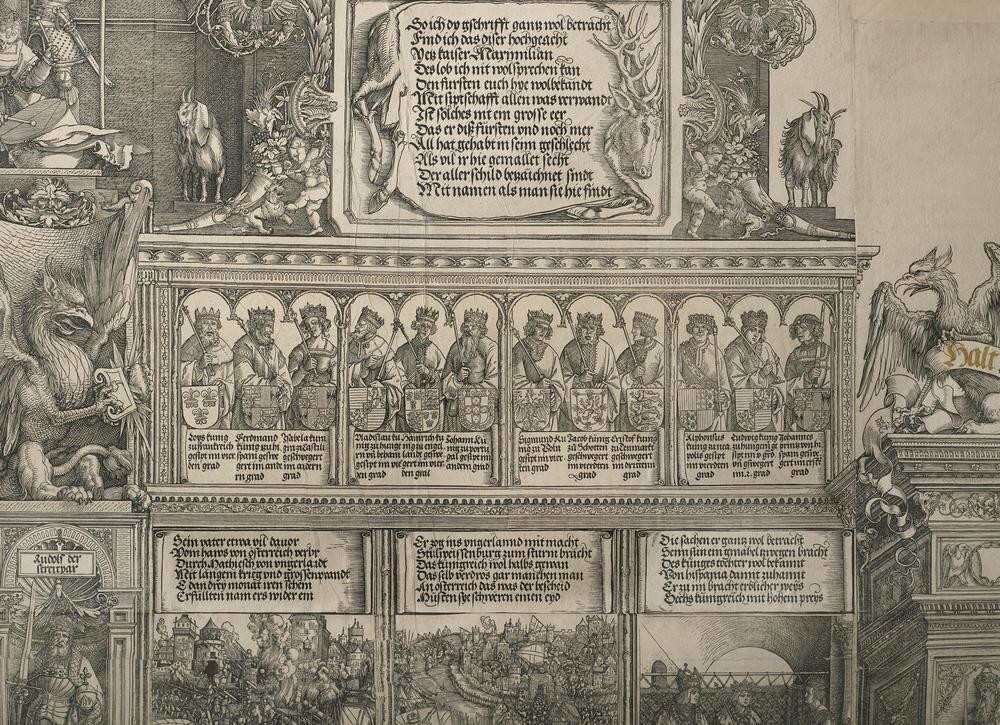 So ich dy gschrifft gantz wol betracht
Find ich das diser hochgeacht
Kaiser Maximilian
Des lob ich nit wolsprechen kan
Den fursten euch hye wolbekandt
Mit siptschafft allen was verwandt
Ist solches nit ein grosse eer
Das er diß fursten vnd noch mer
All hat gehabt in seim geschlecht
Als vil ir hie gemallet secht
Der aller schild betzaichnet sindt
Mit namen als man sie hie findt
Halt
Loys kunig
zu franckreich
gesipt im vier
den grad
Ferdinand
kunig zu hi
spani geswe
gert im ande
rn grad
Isabela kuni
gin zu Castili
geswegert
im andern
grad
Vladislau ku
nig zu hunge
rn vn behem
gesipt im vier
den grad
Heinrich ku
nig zu engel
landt geswe
gert im vier
den grat
Johann ku
nig zu portu
gal gesipt im
andern grad
Sigmund ku
nig zu Poln
gesipt im vier
ten grad
Jacob kunig
zu Schotten
geschwegert
im vierdten
grad
Cristof kunig
zu denmarck
geschwegert
im dritten
grad
Alphonsus
kunig zu nea
polis gesipt
im vierdten
grad
Ludwig kunig
zu hungern ge
sipt im 3 grad
vn gswegert
im .2. grad
Johannes
printz von hi
spani geswe
gert im erste
grad
Sein vater etwa vil dauor
Vom haws von österreich verlor
Durch Mathiesch von vngerlandt
Mit langem krieg vnd grossen brandt
In dreyen monat nun geschehen
Er füllten nam ers wider ein
Er zog ins vngerlannd mit macht
Stullweissenburg zum sturm bracht
Das kunigreich wol halbs gewan
Das selb verdros gar manchen man
An osterreich das was der bescheid
Musten sye schweren einen eyd
Die sachen er gantz wol betracht
Seim sun ein gmahel zwegen bracht
Des kunges tochter wol bekannt
Von hispania damit zuhannt
Er zu im bracht erblicher weys
Sechs kunigreich mit hohem preys
Rudolf der
streitpar